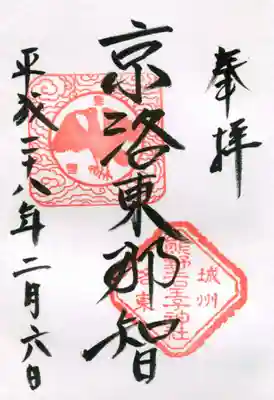 奉拝
京洛東那智
城州
熊野若王子神社
洛東
平成二十八年二月六日